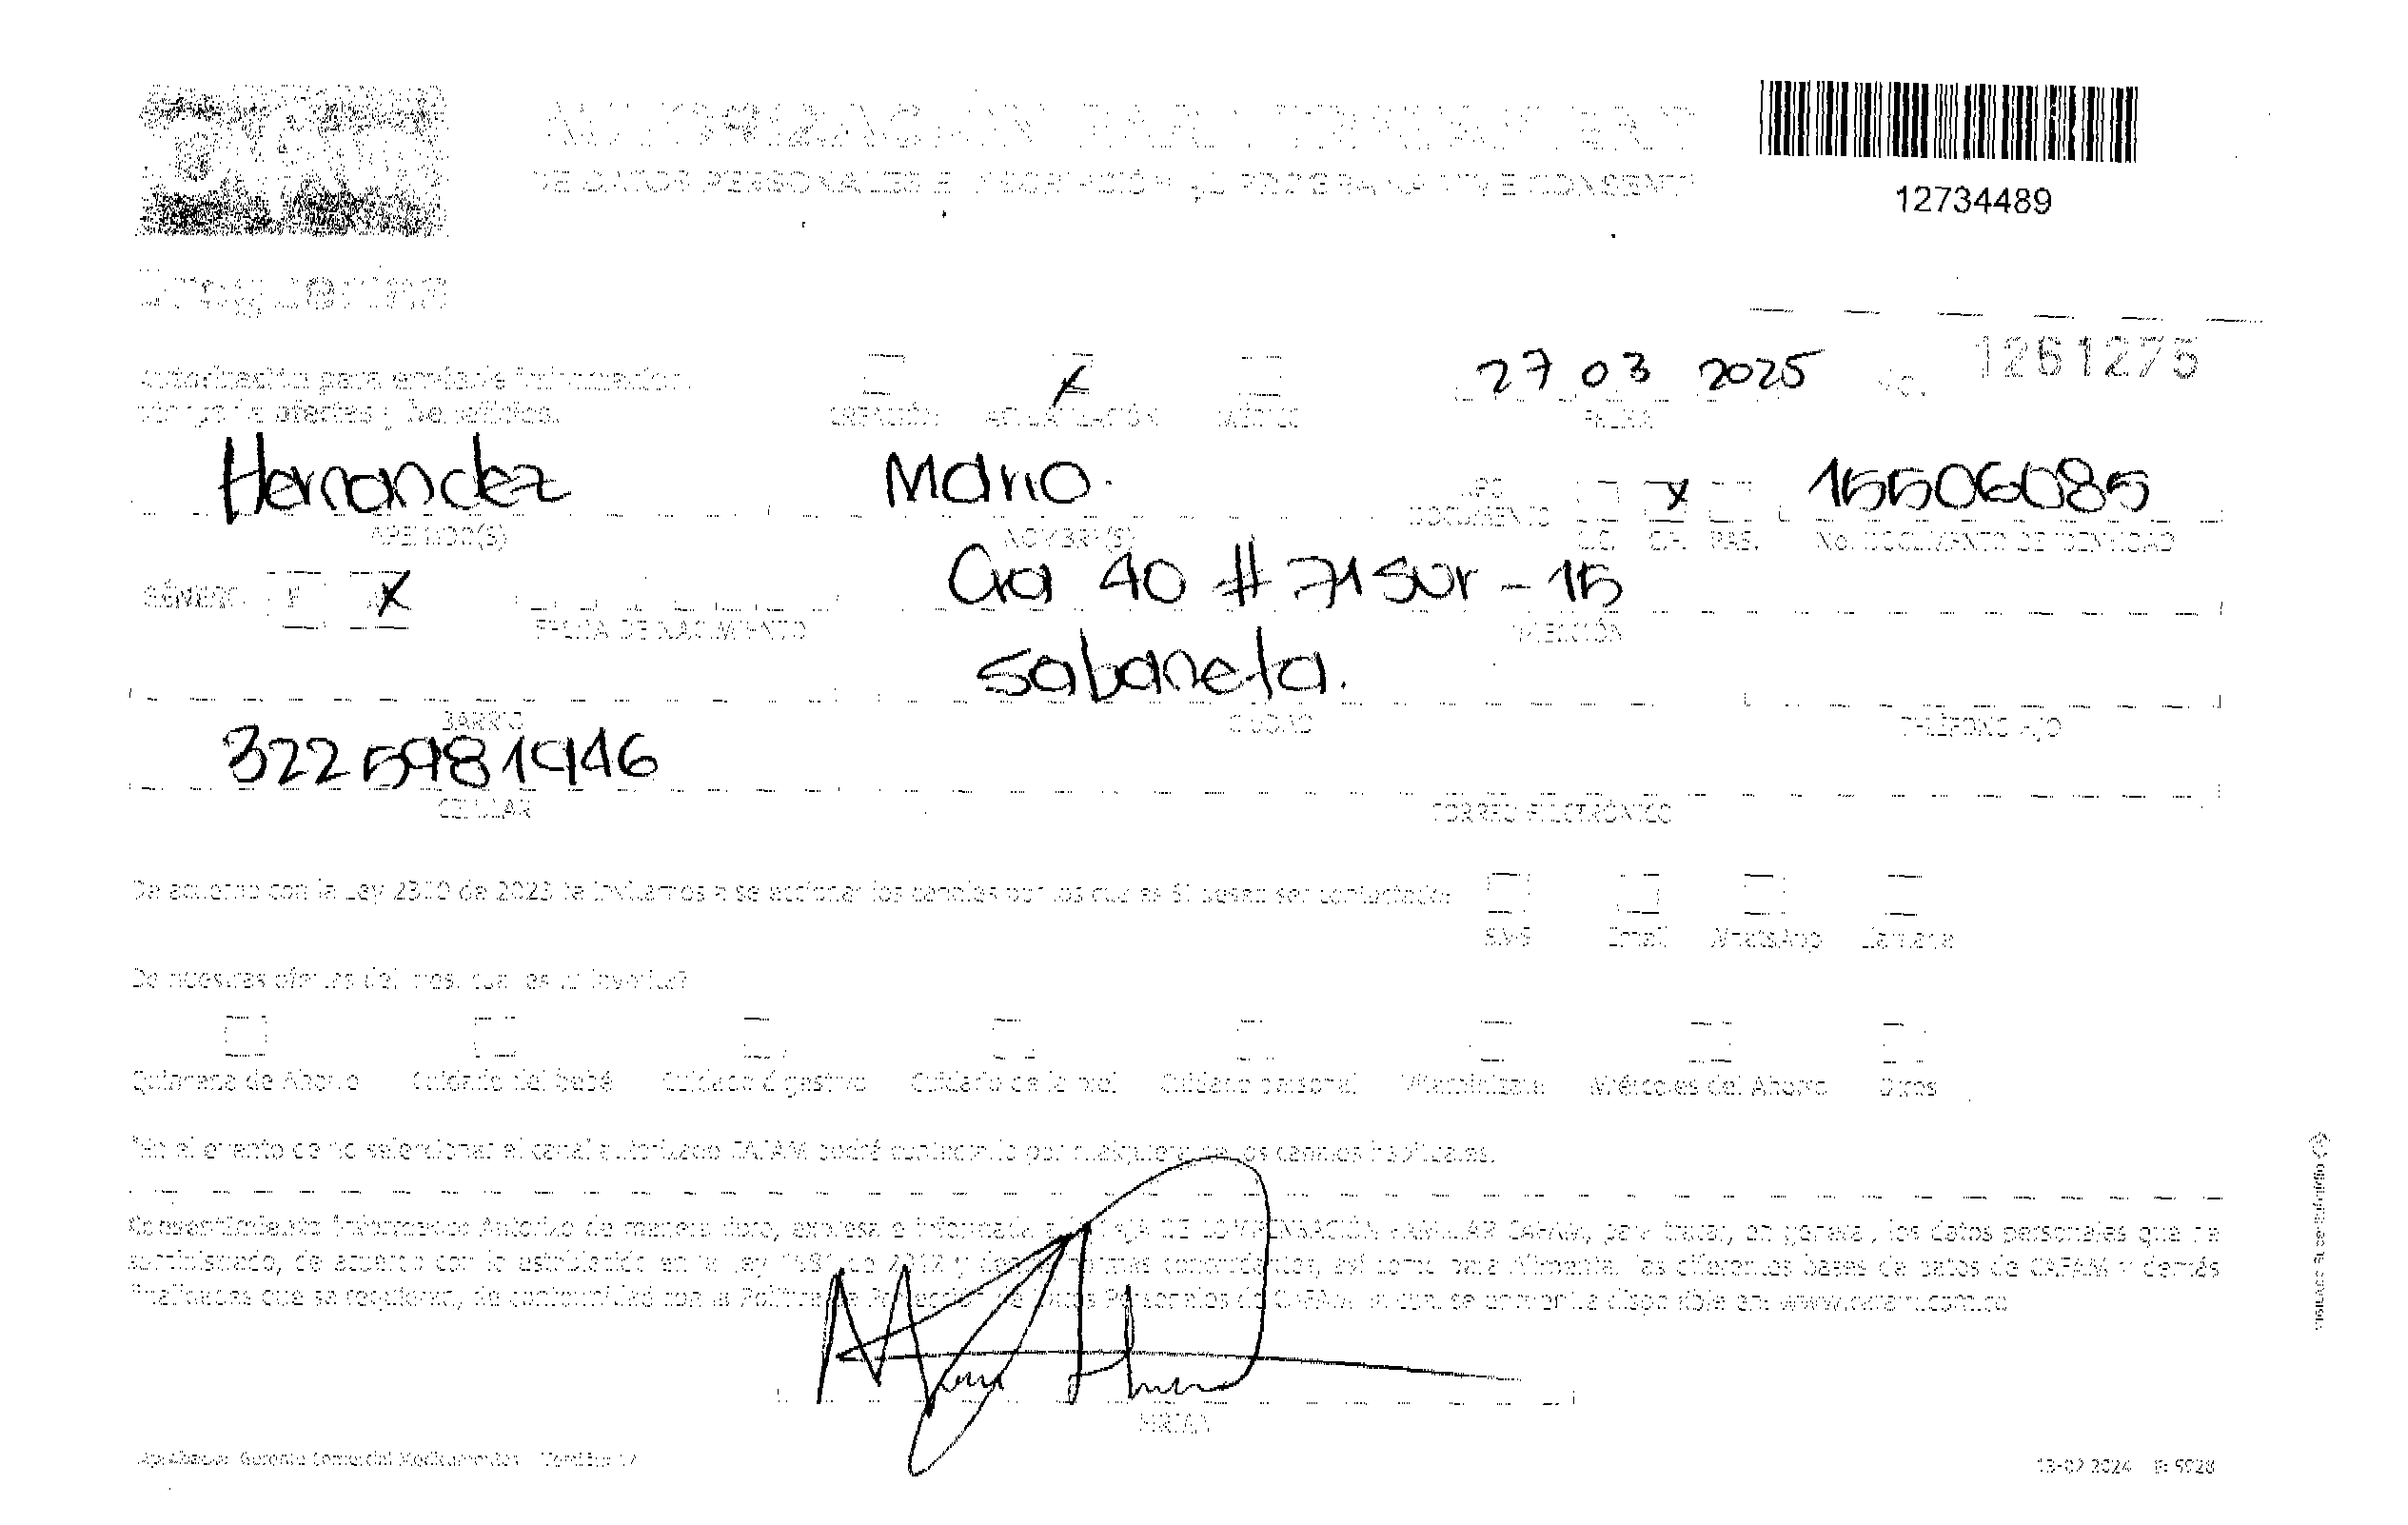 DE DATOS PERSONALES E INSCRIPCIÓN AL PROGRAMA VIVE CONSENT
12734489
Autorización para enviarle información,
ofertas y beneficios.
CREACIÓN ACTUALIZACIÓN MÉDICO
27 03 2025
FECHA
No. 1261275
Hernandez
APELLIDO(S)
Mario.
NOMBRE(S)
TIPO DOCUMENTO
C.C. C.E. PAS.
X
15506085
No. DOCUMENTO DE IDENTIDAD
GÉNERO F X
FECHA DE NACIMIENTO
Cra 40 # 71 sur - 15
DIRECCIÓN
BARRIO
Sabaneta.
CIUDAD
TELÉFONO FIJO
3225981946
CELULAR
CORREO ELECTRÓNICO
De acuerdo con la Ley 2300 de 2023 te invitamos a seleccionar los canales por los cuales Sí deseas ser contactado:
SMS Email WhatsApp Llamada
De nuestras ofertas del mes, cuál es tu favorita?
Quincena de Ahorro Cuidado del bebé Cuidado digestivo Cuidado de la piel Cuidado personal Vitaminízate Miércoles del Ahorro Otros
*En el evento de no seleccionar el canal autorizado CAFAM podrá contactarlo por cualquiera de los canales habituales.
Consentimiento Informado: Autorizo de manera libre, expresa e informada a la CAJA DE COMPENSACIÓN FAMILIAR CAFAM, para tratar, en general, los datos personales que he
suministrado, de acuerdo con lo establecido en la Ley 1581 de 2012 y demás normas concordantes, así como para alimentar las diferentes bases de datos de CAFAM y demás
finalidades que se requieran, de conformidad con la Política de Protección de Datos Personales de CAFAM, la cual se encuentra disponible en: www.cafam.com.co
FIRMA
Aprobado: Gerente Comercial Medicamentos Versión: 17
13-02-2024 F: 5928